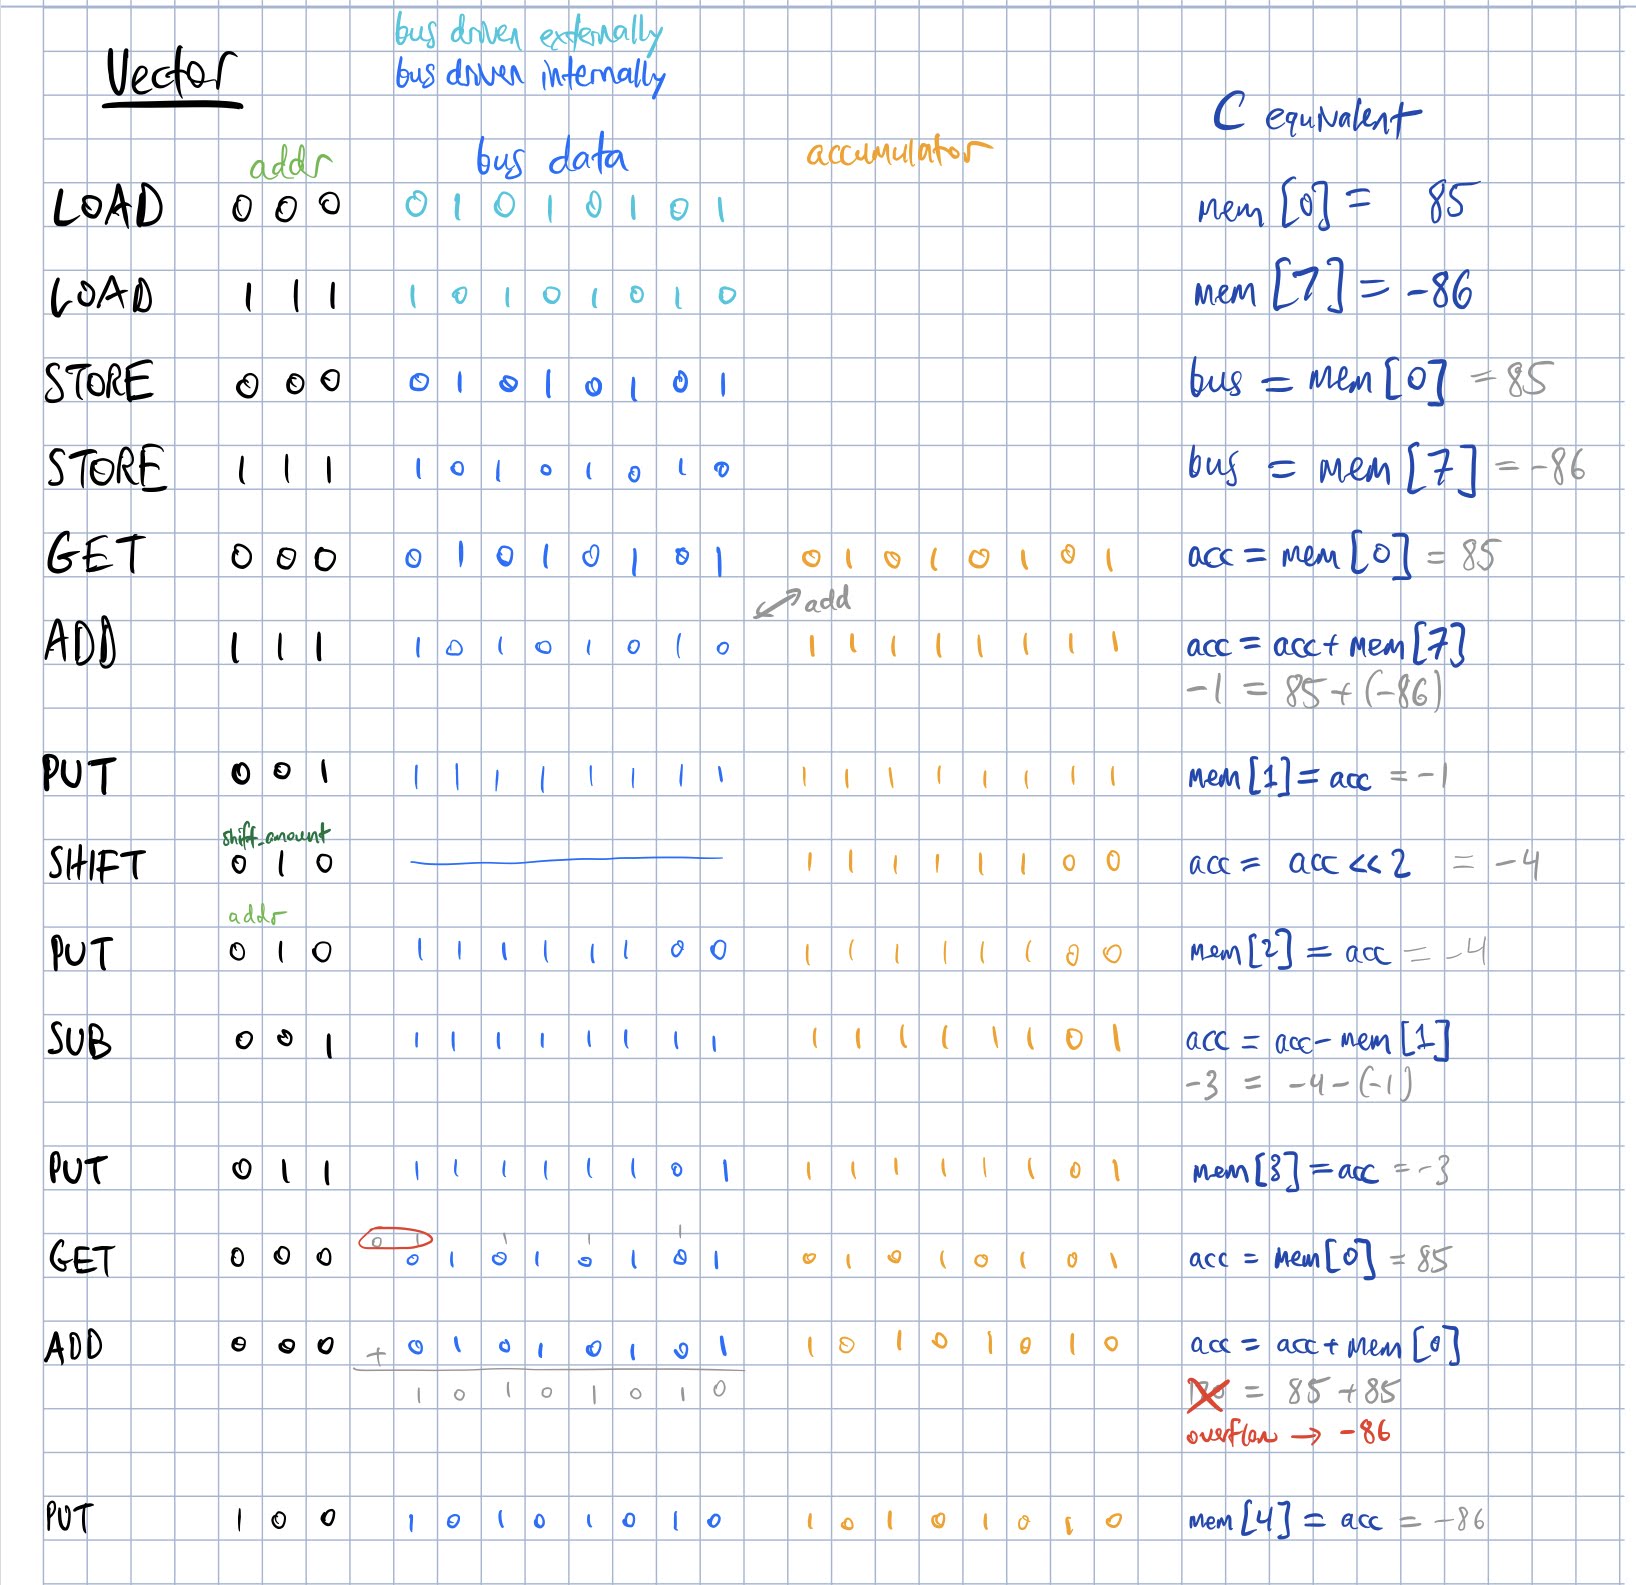 bus driven externally
Vector bus driven internally
C equivalent
addr bus data accumulator
LOAD 0 0 0 0 1 0 1 0 1 0 1 mem [0] = 85
LOAD 1 1 1 1 0 1 0 1 0 1 0 mem [7] = -86
STORE 0 0 0 0 1 0 1 0 1 0 1 bus = mem [0] = 85
STORE 1 1 1 1 0 1 0 1 0 1 0 bus = mem [7] = -86
GET 0 0 0 0 1 0 1 0 1 0 1 0 1 0 1 0 1 0 1 acc = mem [0] = 85
add
ADD 1 1 1 1 0 1 0 1 0 1 0 1 1 1 1 1 1 1 1 acc = acc + mem [7]
-1 = 85 + (-86)
PUT 0 0 1 1 1 1 1 1 1 1 1 1 1 1 1 1 1 1 1 mem [1] = acc = -1
shift_amount
SHIFT 0 1 0 1 1 1 1 1 1 0 0 acc = acc << 2 = -4
addr
PUT 0 1 0 1 1 1 1 1 1 0 0 1 1 1 1 1 1 0 0 mem [2] = acc = -4
SUB 0 0 1 1 1 1 1 1 1 1 1 1 1 1 1 1 1 0 1 acc = acc - mem [1]
-3 = -4 - (-1)
PUT 0 1 1 1 1 1 1 1 1 0 1 1 1 1 1 1 1 0 1 mem [3] = acc = -3
0 1 1 1 1
GET 0 0 0 0 1 0 1 0 1 0 1 0 1 0 1 0 1 0 1 acc = mem [0] = 85
ADD 0 0 0 + 0 1 0 1 0 1 0 1 1 0 1 0 1 0 1 0 acc = acc + mem [0]
1 0 1 0 1 0 1 0 = 85 + 85
overflow → -86
PUT 1 0 0 1 0 1 0 1 0 1 0 1 0 1 0 1 0 1 0 mem [4] = acc = -86